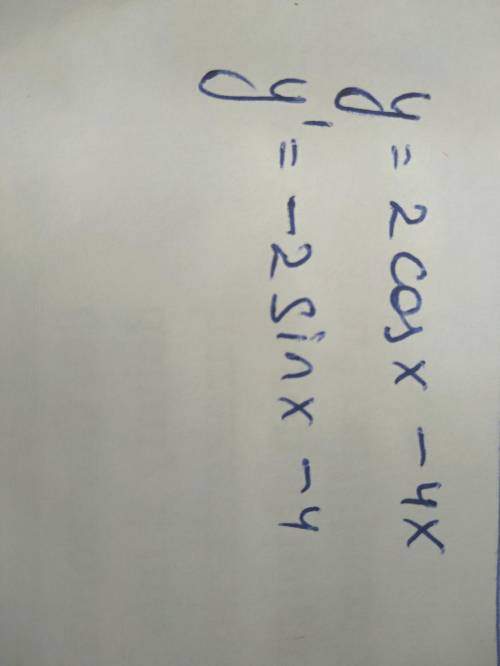 y = 2 cos x - 4x
y' = -2 sin x - 4